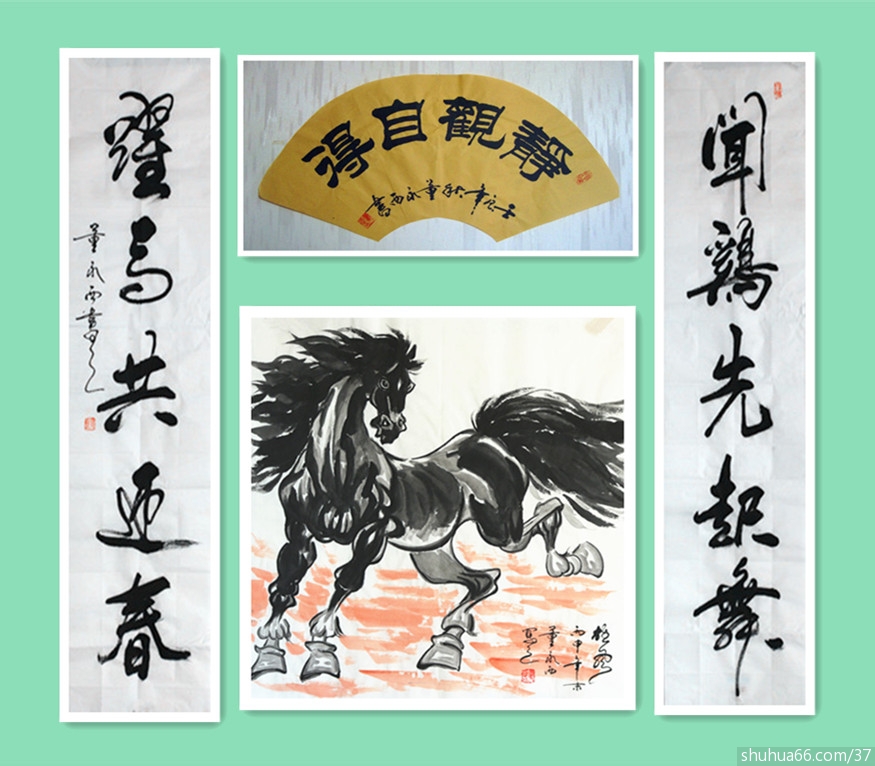 聞鷄先起舞
靜觀自得
壬辰年秋董永西書
躍馬共迎春
董永西書
丙申年
董永西
寫之
shuhua66.com/37